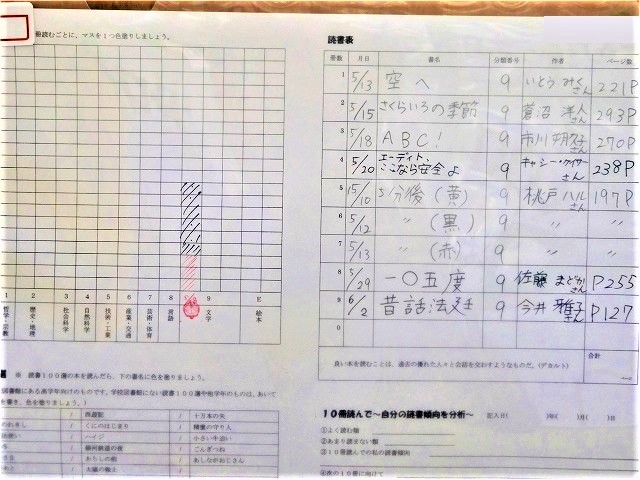 冊読むごとに、マスを1つ色塗りしましょう。
1 2 3 4 5 6 7 8 9 E
哲学・宗教 歴史・地理 社会科学 自然科学 技術・工業 産業・交通 芸術・体育 言語 文学 絵本
※ 読書100選の本を読んだら、下の書名に色を塗りましょう。
図書館にある高学年向けのものです。学校図書館にない読書100選や他学年のものは、あいて
を書き、色を塗りましょう。)
/ 西遊記 / 十五少年
/ くにのはじまり / 精霊の守り人
/ ハイジ / 小さい牛追い
/ 銀河鉄道の夜 / ごんぎつね
/ あらしの前 / あしながおじさん
読書表
冊数 月日 書名 分類番号 作者 ページ数
1 5/13 空へ 9 いとうみくさん 221P
2 5/15 さくらいろの季節 9 蒼沼洋人さん 293P
3 5/18 ABC! 9 市川朔久子さん 270P
4 5/20 エーディト、ここなら安全よ 9 キャシー・ケイサーさん 238P
5 15/10 5分後(黄) 9 桃戸ハルさん 197P
6 5/12 〃 (黒) 9 〃 〃
7 5/13 〃 (赤) 9 〃 〃
8 5/29 一〇五度 9 佐藤まどかさん P255
9 6/2 昔話法廷 9 今井雅子さん P127
0
合計
良い本を読むことは、過去の優れた人々と会話を交わすようなものだ。(デカルト)
10冊読んで~自分の読書傾向を分析~ 記入日( )年( )月( )日
①よく読む類
②あまり読まない類
③10冊読んでの私の読書傾向
④次の10冊に向けて